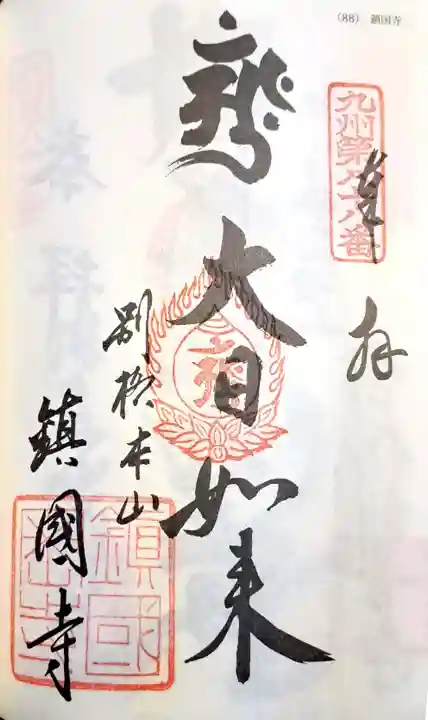 (88) 鎮国寺
九州第八十八番
奉
拝
大日如来
別格本山
鎮國寺
鎮國寺